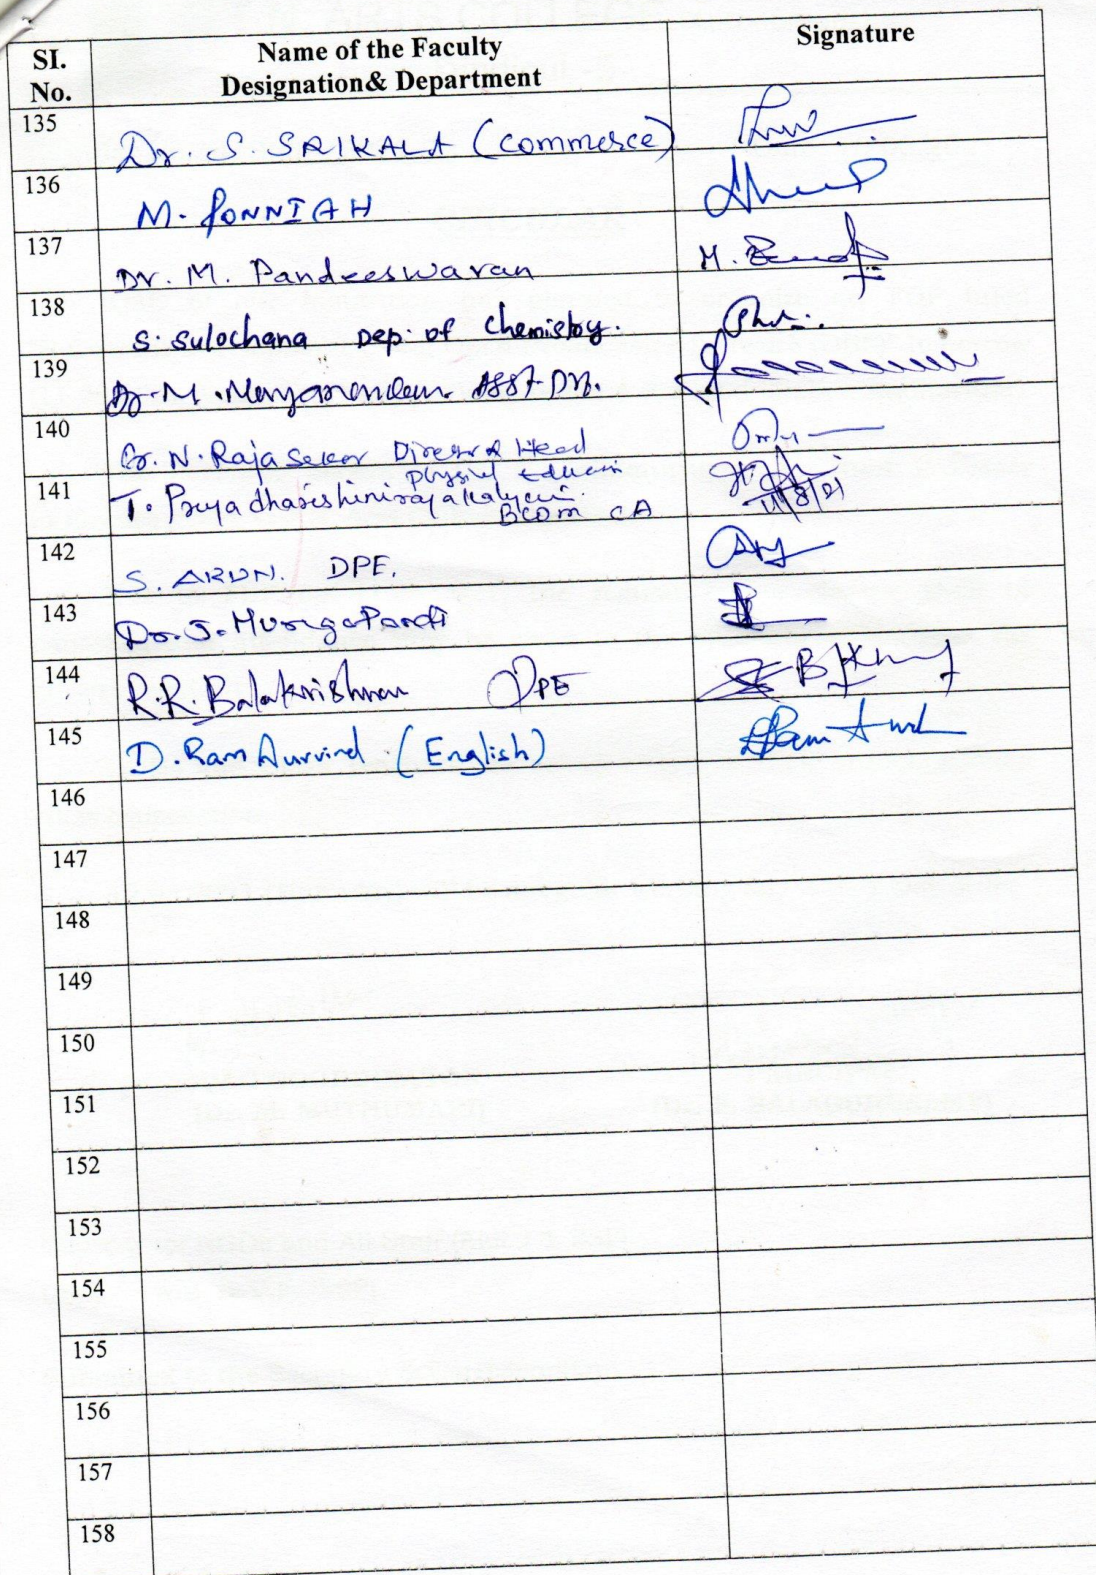 SI. No.
Name of the Faculty
Designation& Department
Signature
135
Dr. S. SRIKALA (Commerce)
136
M. PONNIAH
137
Dr. M. Pandeeswaran
M.
138
S. Sulochana Dep. of Chemistry.
139
M. Asst
140
Dr. N. Raja Sekar Director & Head
Physical Education
141
T. Priyadharshini
BCOM CA
11/8/21
142
S. ARUN. DPE.
143
Dr. J. MurugaPandi
144
R.R. Balakrishnan DPE
145
D. Ram Aurvind (English)
Ram
146
147
148
149
150
151
152
153
154
155
156
157
158